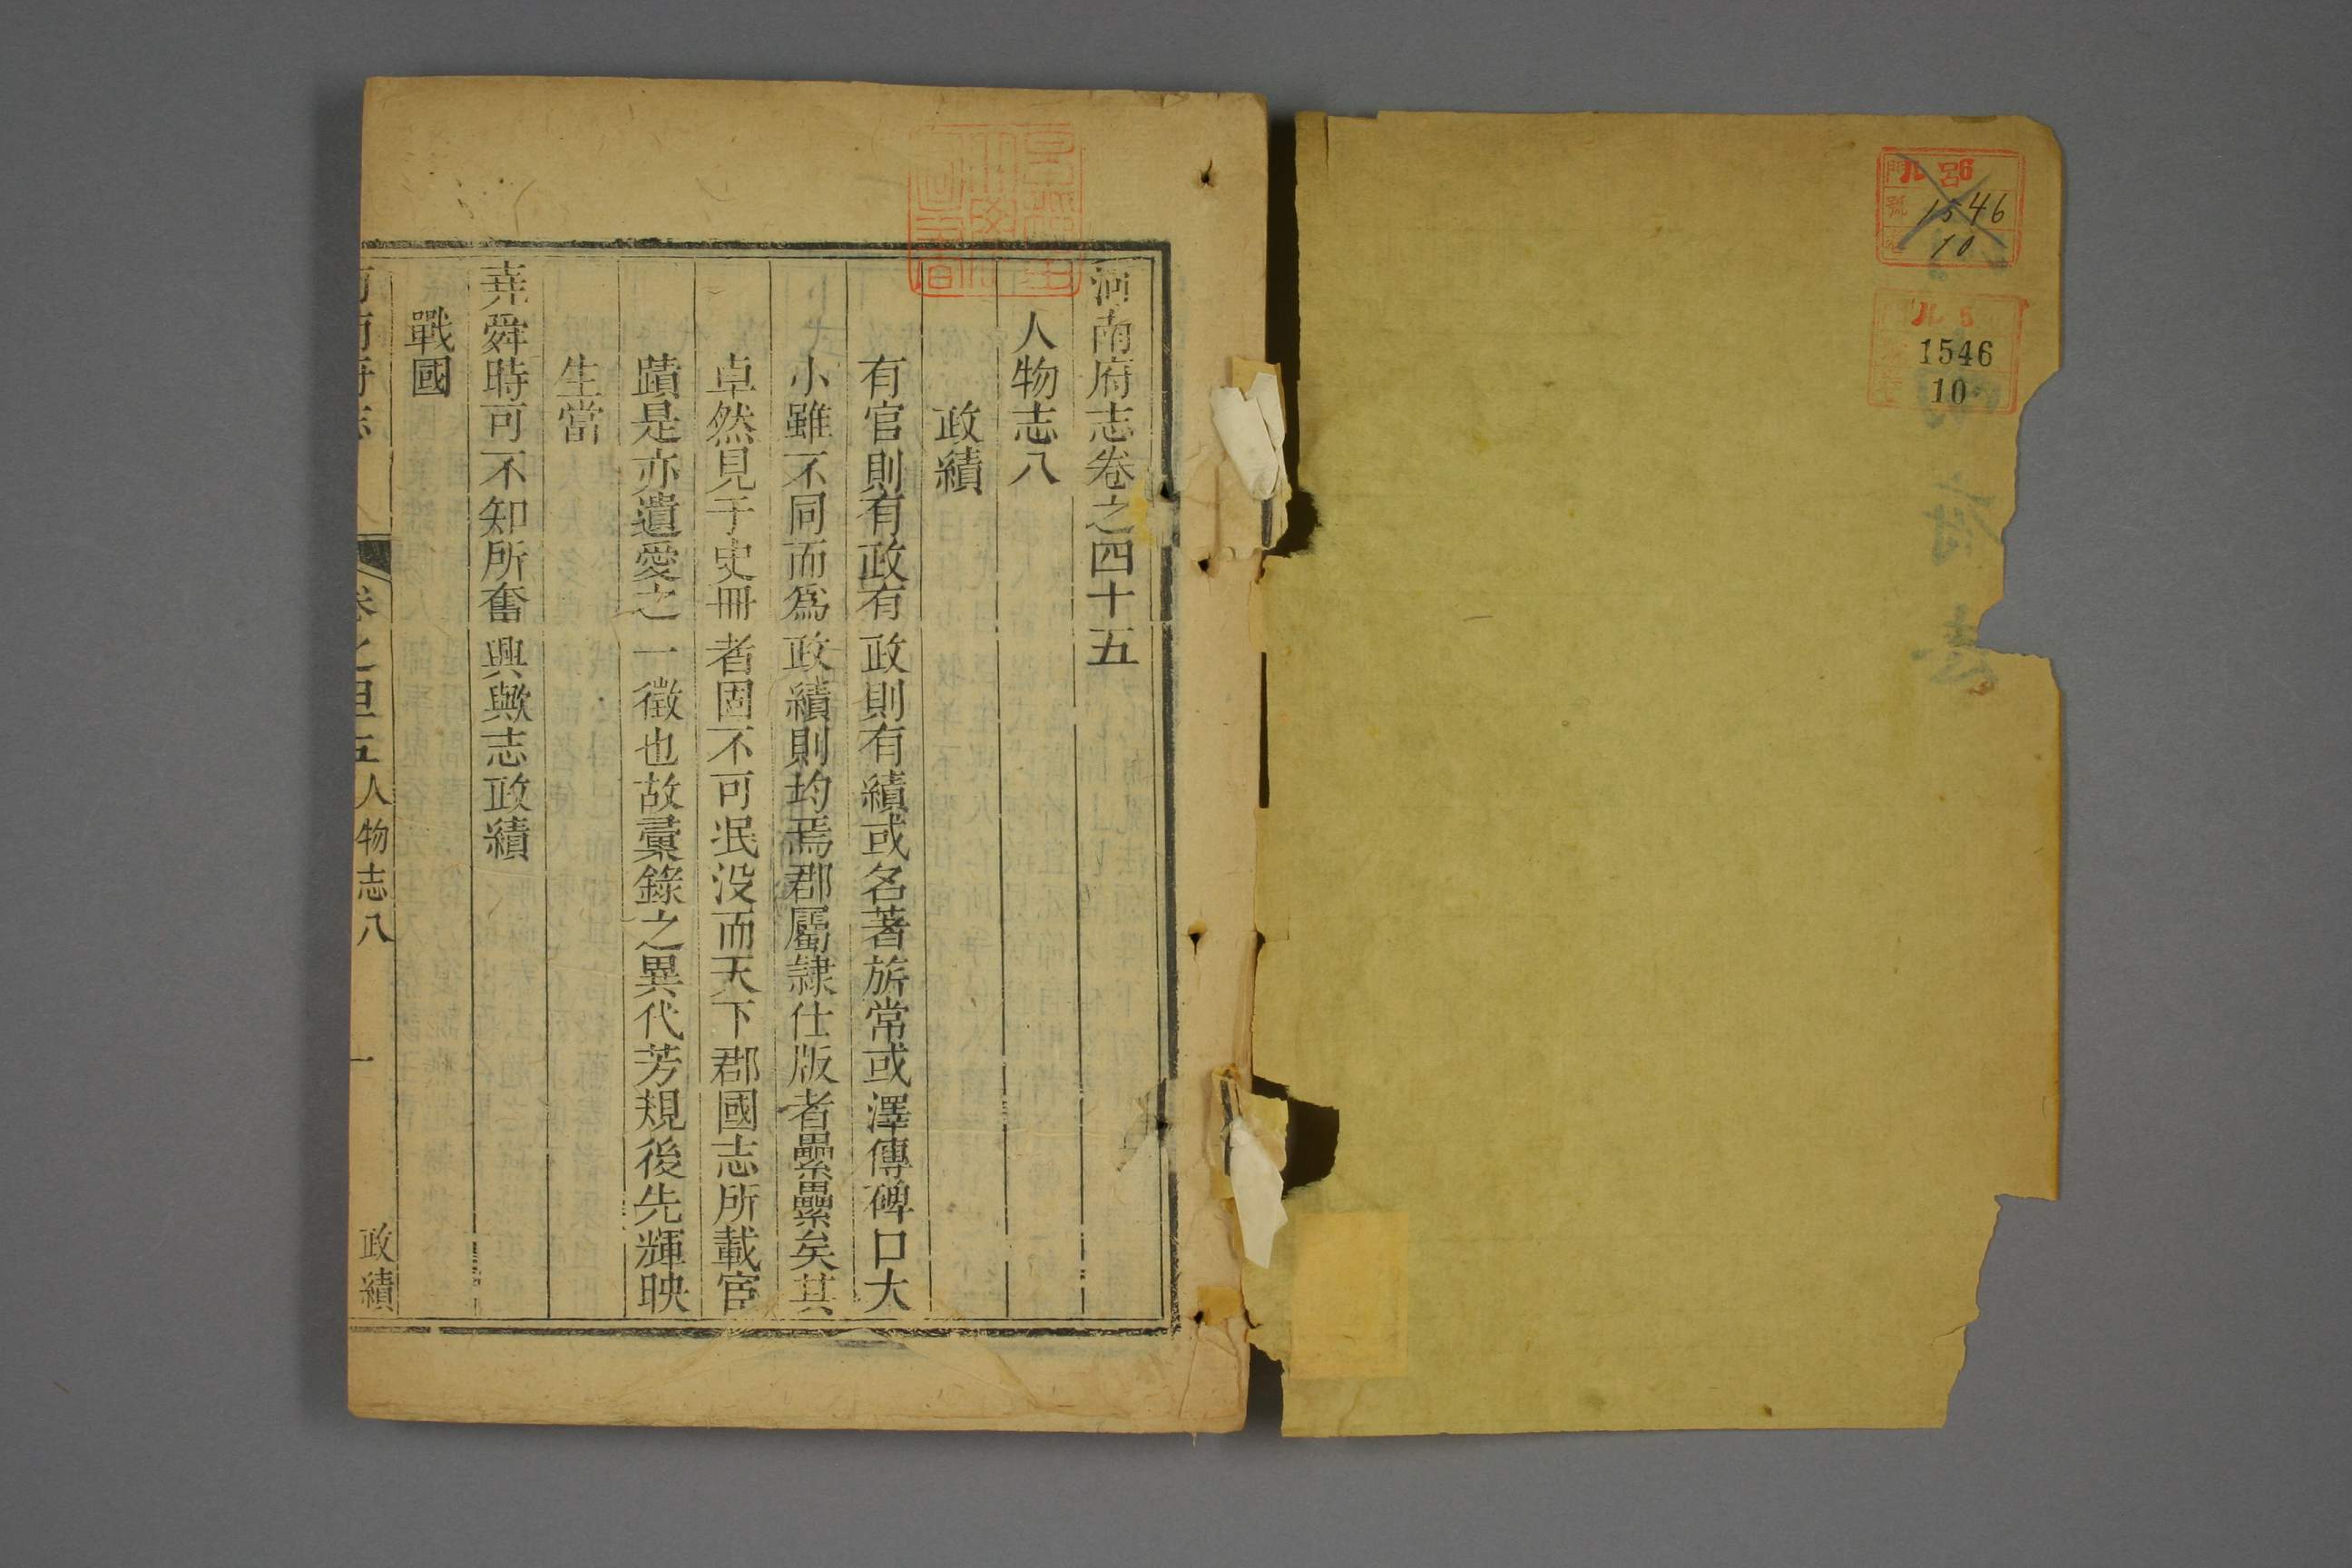 河南府志卷之四十五
人物志八
政績
有官則有政有政則有績或名著旂常或澤傳碑口大
小雖不同而爲政績則均焉郡屬隷仕版者纍纍矣其
卓然見于史冊者固不可泯没而天下郡國志所載宦
蹟是亦遺愛之一徵也故彚錄之異代芳規後先輝映
生當
堯舜時可不知所奮興歟志政績
戰國
人物志八
一
政績
1546
10
1546
10